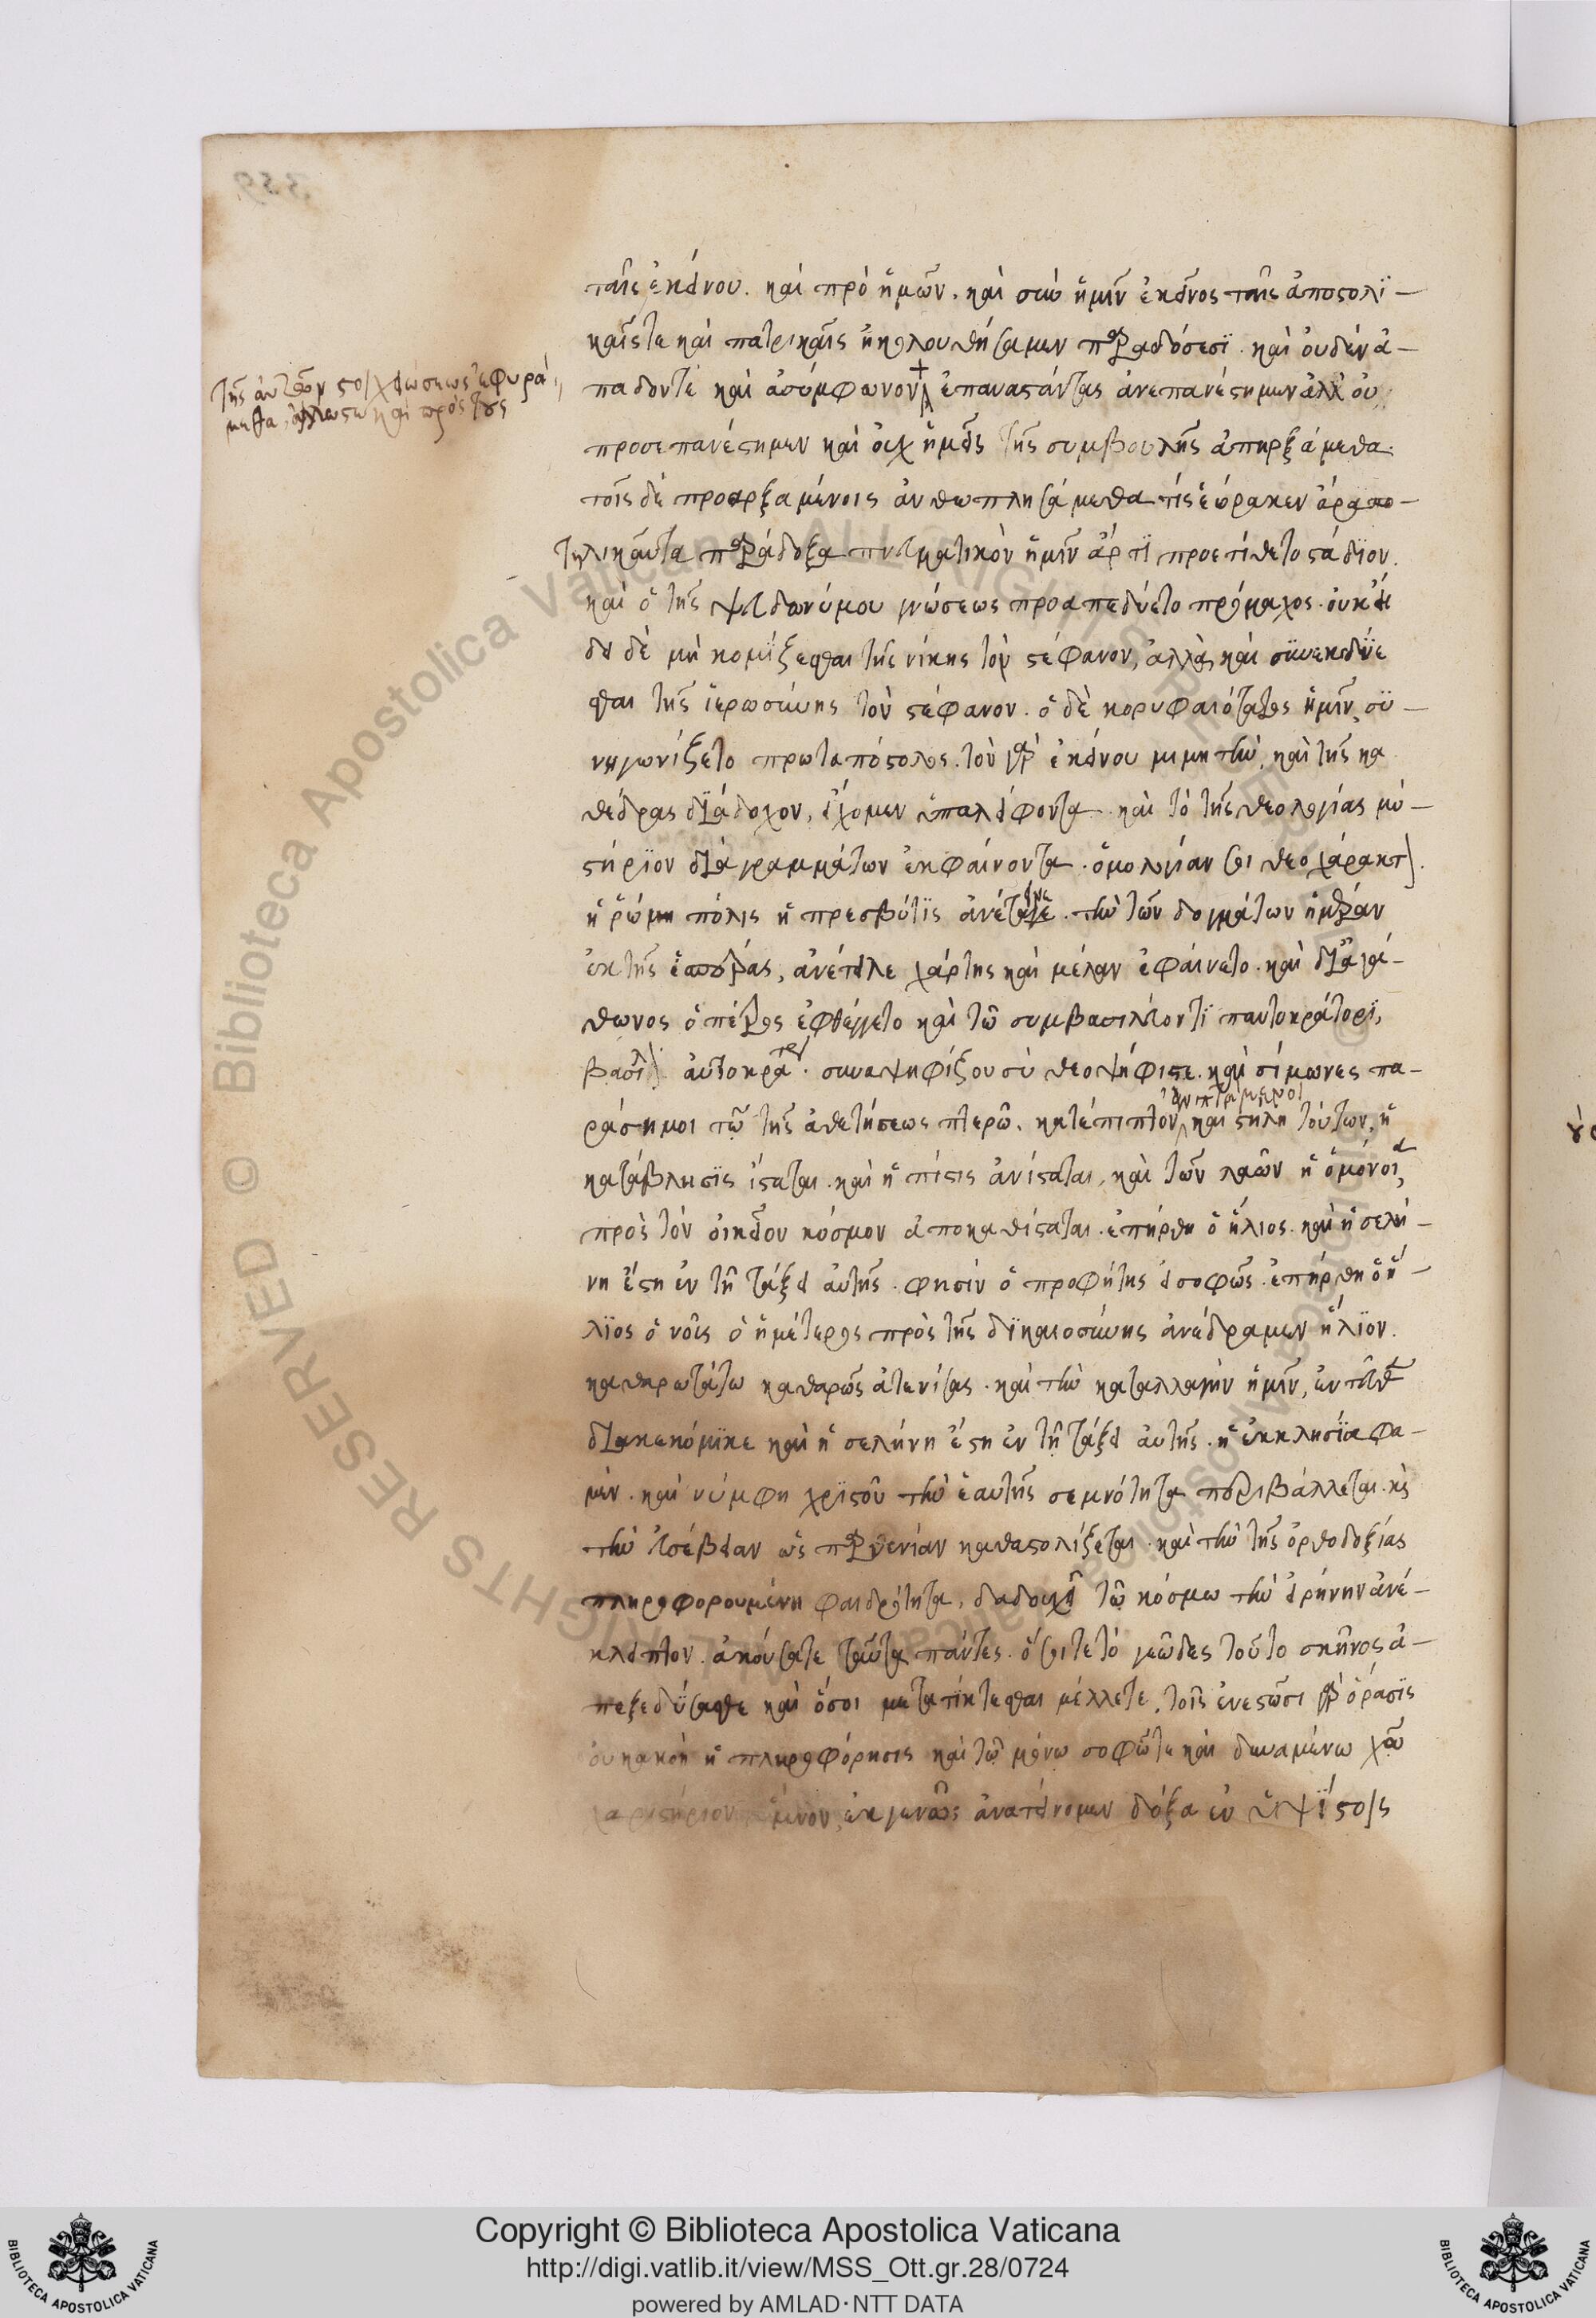 ταῖς ἐκείνου. καὶ πρὸ ἡμῶν. καὶ σὺν ἡμῖν ἐκεῖνος ταῖς ἀποστολϊ-
καῖς τε καὶ πατρικαῖς ἠκολουθήσαμεν παραδόσεσϊ. καὶ οὐδὲν ἀ-
τῆς αὐτῶν στοιχειώσεως ἐφυρά
μεθα, ἀλλως τε καὶ πρὸς τοὺς
παδοντε καὶ ἀσύμφωνον ἐπαναστάντας ἀνεπανέστημεν ἀλλ' οὐ
προσεπανέστημεν καὶ οὐχ ἡμεῖς τῆς συμβουλῆς ἀπηρξάμεθα.
τοῖς δὲ προαρξαμένοις ἀνθωπλησάμεθα τίς ἑώρακεν ἄρα
τηλικαῦτα παράδοξα πνευματικὸν ἡμῖν ἄρτϊ προετίθετο στάδϊον.
καὶ ὁ τῆς ψευδωνύμου γνώσεως προαπεδύετο πρόμαχος. οὐκ ἔ
δει δὲ μὴ κομϊζεσθαι τῆς νίκης τὸν στέφανον, ἀλλὰ καὶ σϋνεκδϋε
σθαι τῆς ἱερωσύνης τὸν στέφανον. ὁ δὲ κορυφαιότατος ἡμῖν, σϋ-
νηγωνίζετο πρωταπόστολος. τὸν γὰρ ἐκείνου μιμητὴν, καὶ τῆς κα
θέδρας δϊάδοχον, εἴχομεν ὑπαλείφοντα. καὶ τὸ τῆς θεολογίας μυ-
στήρϊον δϊὰ γραμμάτων ἐκφαίνοντα. ὁμολογίαν σοι θεοχάρακτ
ἡ ῥώμη πόλις ἡ πρεσβύτϊς ἀνέτεινε. τὴν τῶν δογμάτων ἡμέραν
ἐκ τῆς ἑσπέρας, ἀνέτειλε χάρτης καὶ μέλαν ἐφαίνετο. καὶ δϊ' ἀγά-
θωνος ὁ πέτρος ἐφθέγγετο καὶ τῶ συμβασιλεύοντϊ παντοκράτορϊ,
βασϊλ αὐτοκράτορ. συνεψηφίζου σὺ θεοψήφιστε. καὶ σίμωνες πα-
ράσημοι τῶ τῆς ἀθετήσεως πτερῶ. κατέπιπτον ἀνιπτάμενοι καὶ στήλη τούτων, ἡ
κατάβλησϊς ἵσταται. καὶ ἡ πίστις ἀνίσταται, καὶ τῶν λαῶν ἡ ὁμόνοια,
πρὸς τὸν οἰκεῖον κόσμον ἀποκαθίσταται. ἐπήρθη ὁ ἥλιος. καὶ ἡ σελή-
νη ἔστη ἐν τῆ τάξει αὐτῆς. φησὶν ὁ προφήτης εἰ σοφῶς. ἐπήρθη ὁ ἥ-
λϊος ὁ νοῦς ὁ ἡμέτερος πρὸς τῆς δϊκαιοσύνης ἀνέδραμεν ἥλϊον.
καθαρωτάτω καθαρῶς ἀτενίσας. καὶ τὴν καταλλαγὴν ἡμῖν, ἐντεῦθεν
δϊακεκόμϊκε καὶ ἡ σελήνη ἔστη ἐν τῆ τάξει αὐτῆς. ἡ ἐκκλησϊα φα-
μὲν. καὶ νύμφη χρϊστοῦ τὴν ἑαυτῆς σεμνότητα περιβάλλεται. καὶ
τὴν εὐσέβειαν ὡς παρθενίαν καθαστολίζεται. καὶ τὴν τῆς ὀρθοδοξίας
πληροφορουμένη φαιδρότητα, δαδουχεῖ τῶ κόσμω τὴν εἰρήνην ἀνέ-
κλειπτον. ἀκούσατε ταῦτα πάντες. ὅσοι τε τὸ γεῶδες τοῦτο σκῆνος ἀ-
πεξεδύσασθε καὶ ὅσοι μετατϊκτεσθαι μέλλετε. τοῖς ἐνεστῶσι γὰρ ὅρασϊς
οὐκ ἀκοὴ ἡ πληροφόρησις καὶ τῶ μόνω σοφῶ τε καὶ δυναμένω
χαριστήριον ὕμνον, ἐκγενῶς ἀνατείνομεν δόξα ἐν ὑψΐστοις